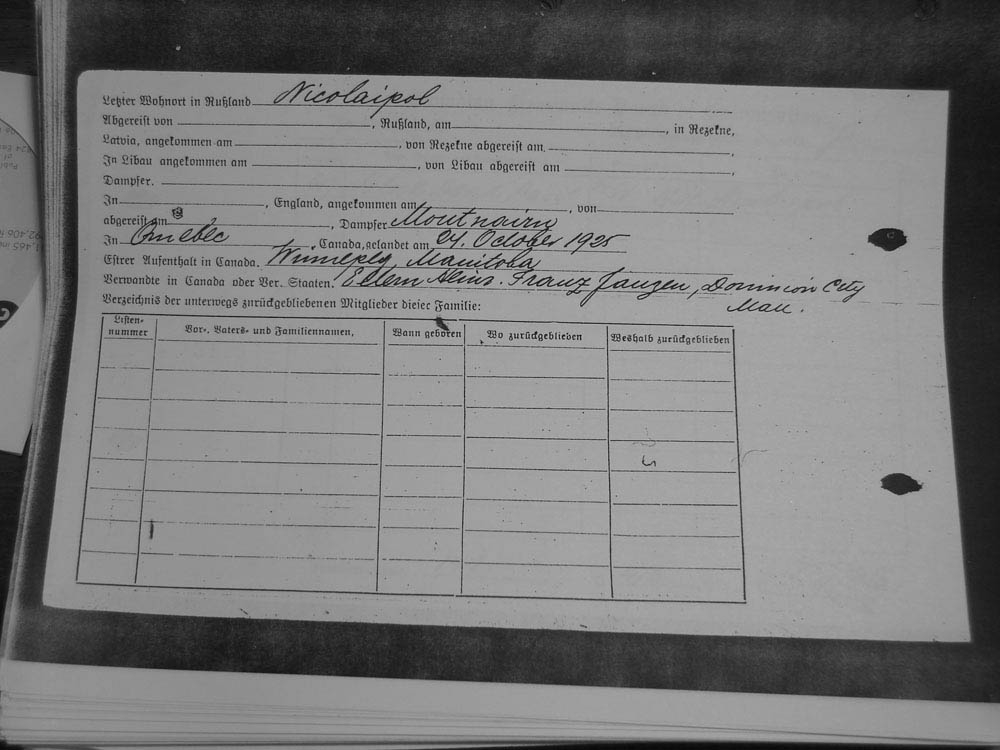 Letzter Wohnort in Rußland Nicolaipol
Abgereist von , Rußland, am , in Rezekne,
Latvia, angekommen am , von Rezekne abgereist am ,
In Libau angekommen am , von Libau abgereist am ,
Dampfer.
In , England, angekommen am , von
abgereist am , Dampfer Montnairn
In Quebec , Canada, gelandet am 24. October 1925
Estrer Aufenthalt in Canada. Winnipeg, Manitoba
Verwandte in Canada oder Ver. Staaten. Eltern Franz Janzen, Dominion City
Man.
Verzeichnis der unterwegs zurückgebliebenen Mitglieder dieser Familie:
Listen-nummer Vor-, Vaters- und Familiennamen, Wann geboren Wo zurückgeblieben Weshalb zurückgeblieben